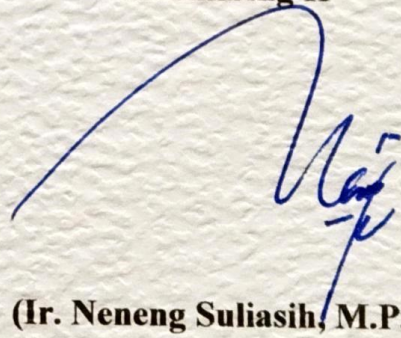 (Ir. Neneng Suliasih, M.P